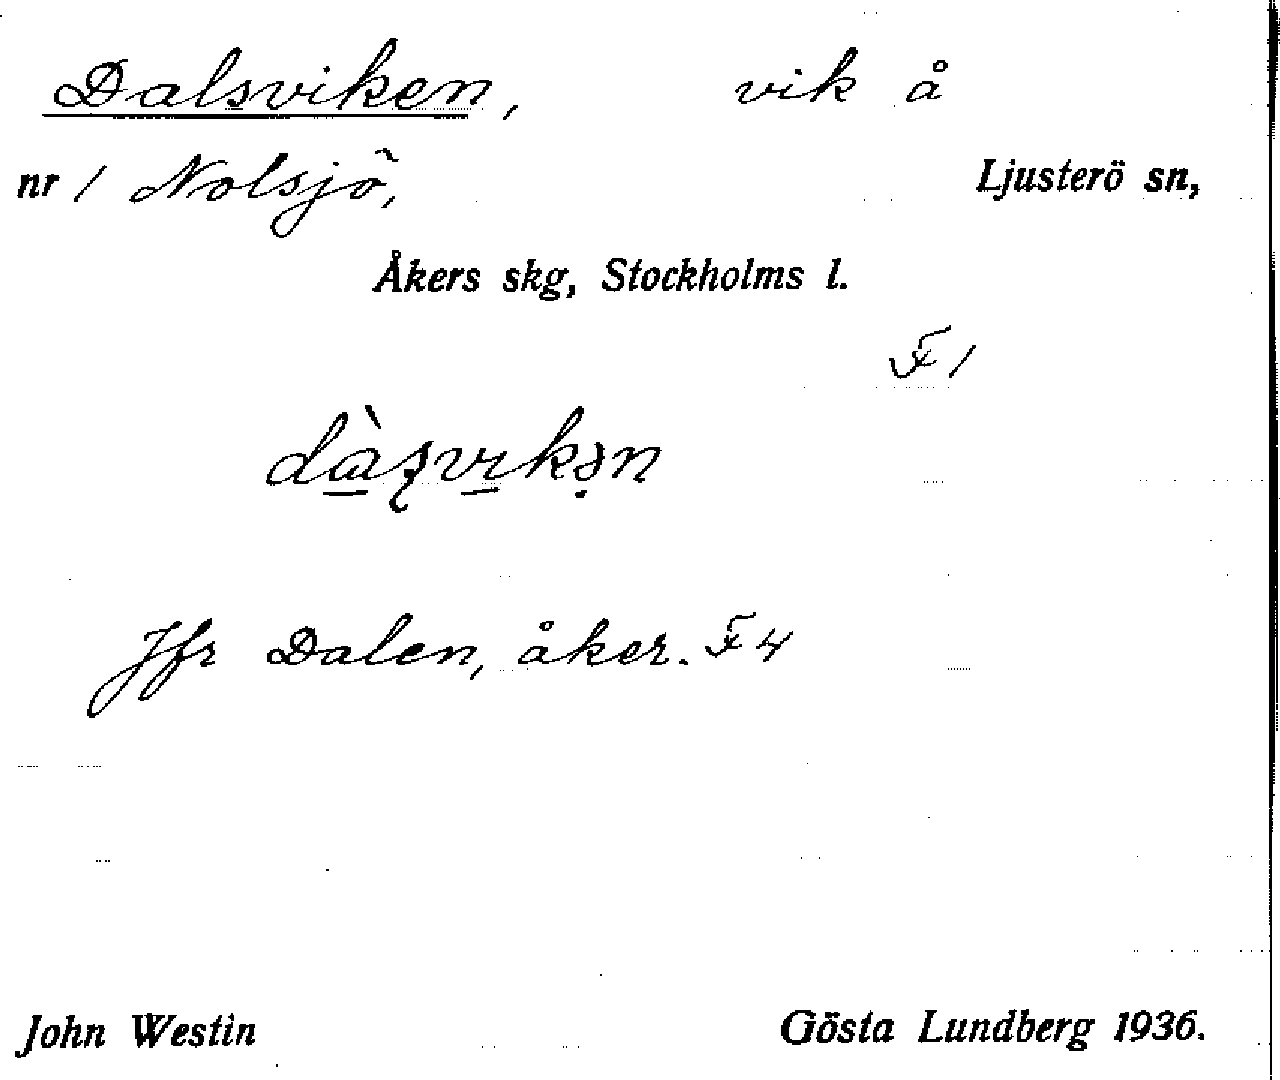 Dalsviken, vik å
nr 1 Nolsjö, Ljusterö sn,
Åkers skg, Stockholms l.
F 1
Jfr Dalen, åker. F 4
John Westin Gösta Lundberg 1936.